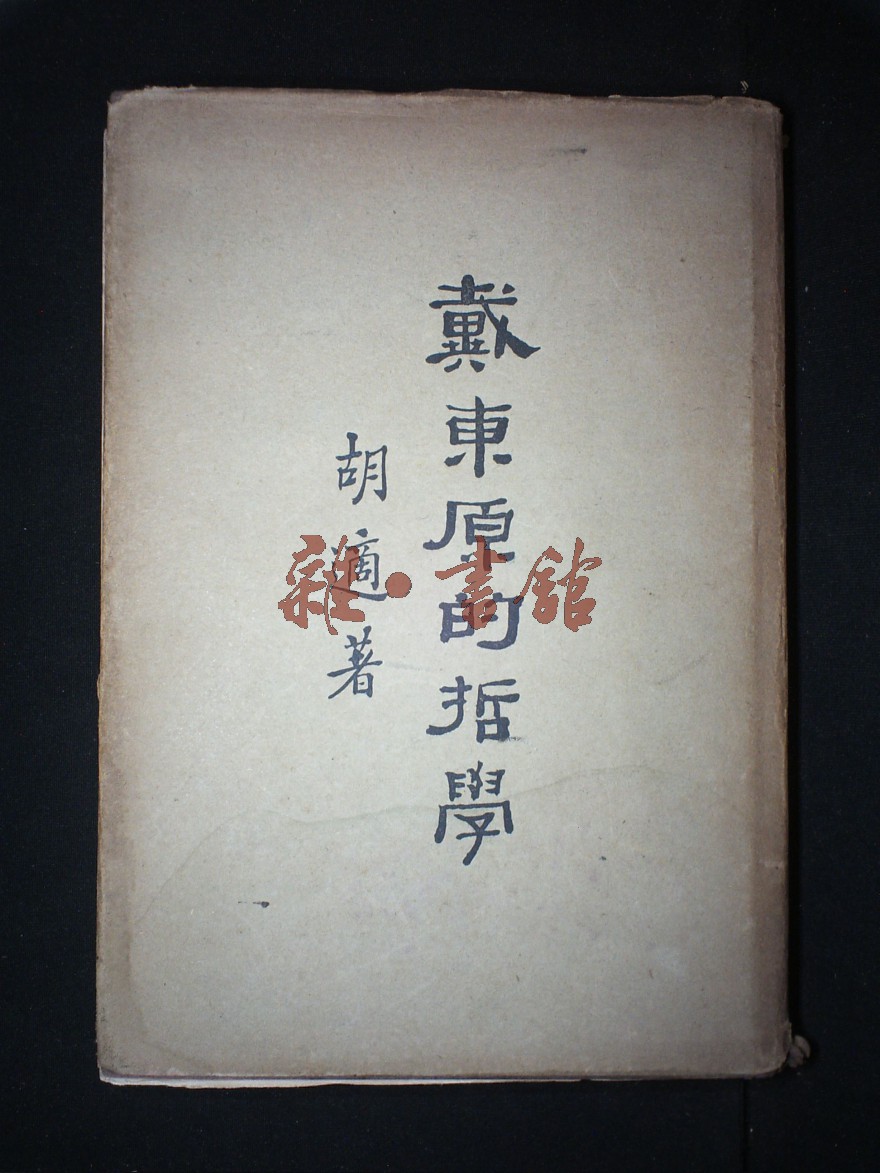 戴東原的哲學
胡適著
雜·書館